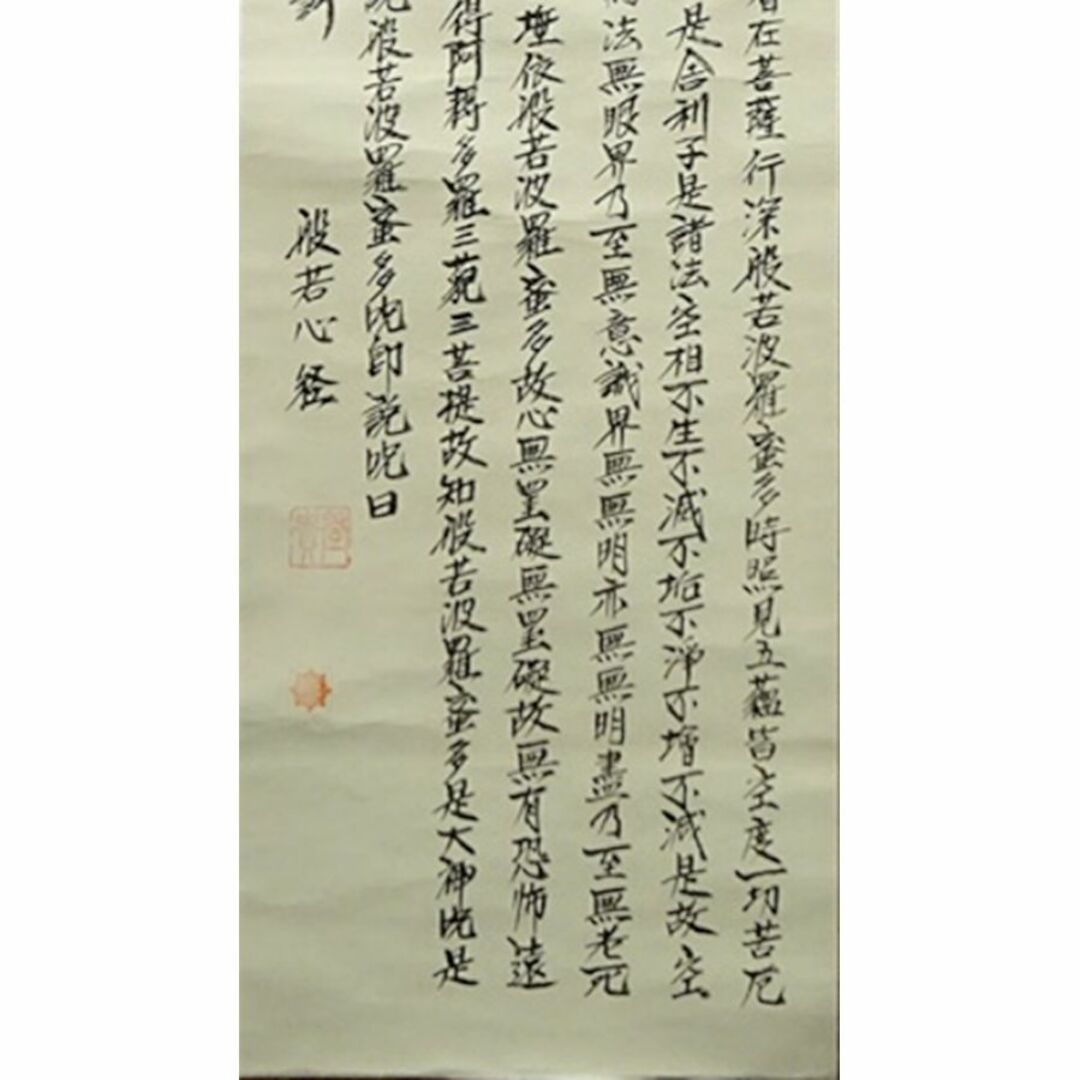 在菩薩行深般若波羅蜜多時照見五蘊皆空度一切苦厄
是舎利子是諸法空相不生不滅不垢不淨不増不減是故空
法無眼界乃至無意識界無無明亦無無明盡乃至無老死
埵依般若波羅蜜多故心無罣礙無罣礙故無有恐怖遠
得阿耨多羅三藐三菩提故知般若波羅蜜多是大神呪是
般若波羅蜜多呪即説呪曰
般若心経